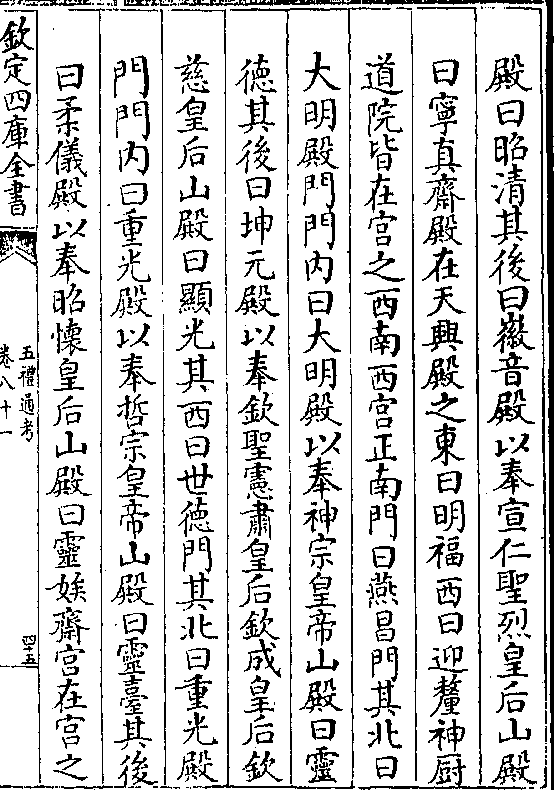 殿曰昭清其後曰徽音殿以奉宣仁聖烈皇后山殿
曰寧真齋殿在天興殿之東曰明福西曰迎釐神厨
道院皆在宫之西南西宫正南門曰燕昌門其北曰
大明殿門門内曰大明殿以奉神宗皇帝山殿曰靈
德其後曰坤元殿以奉欽聖憲肅皇后欽成皇后欽
慈皇后山殿曰顯光其西曰世德門其北曰重光殿
門門内曰重光殿以奉哲宗皇帝山殿曰靈臺其後
曰柔儀殿以奉昭懐皇后山殿曰靈娭齋宫在宫之
欽定四庫全書
五禮通考
卷八十一
四十五